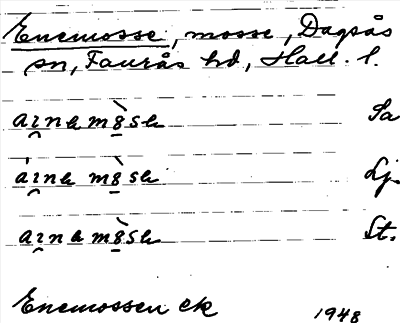 Enemosse, mosse, Dagsås
sn, Faurås hd, Hall. l.
aınəmȣ̀sə Sa
áınə mȣ̀sə Lj.
aınəmȣ̀sə St.
Enemossen ek
1948